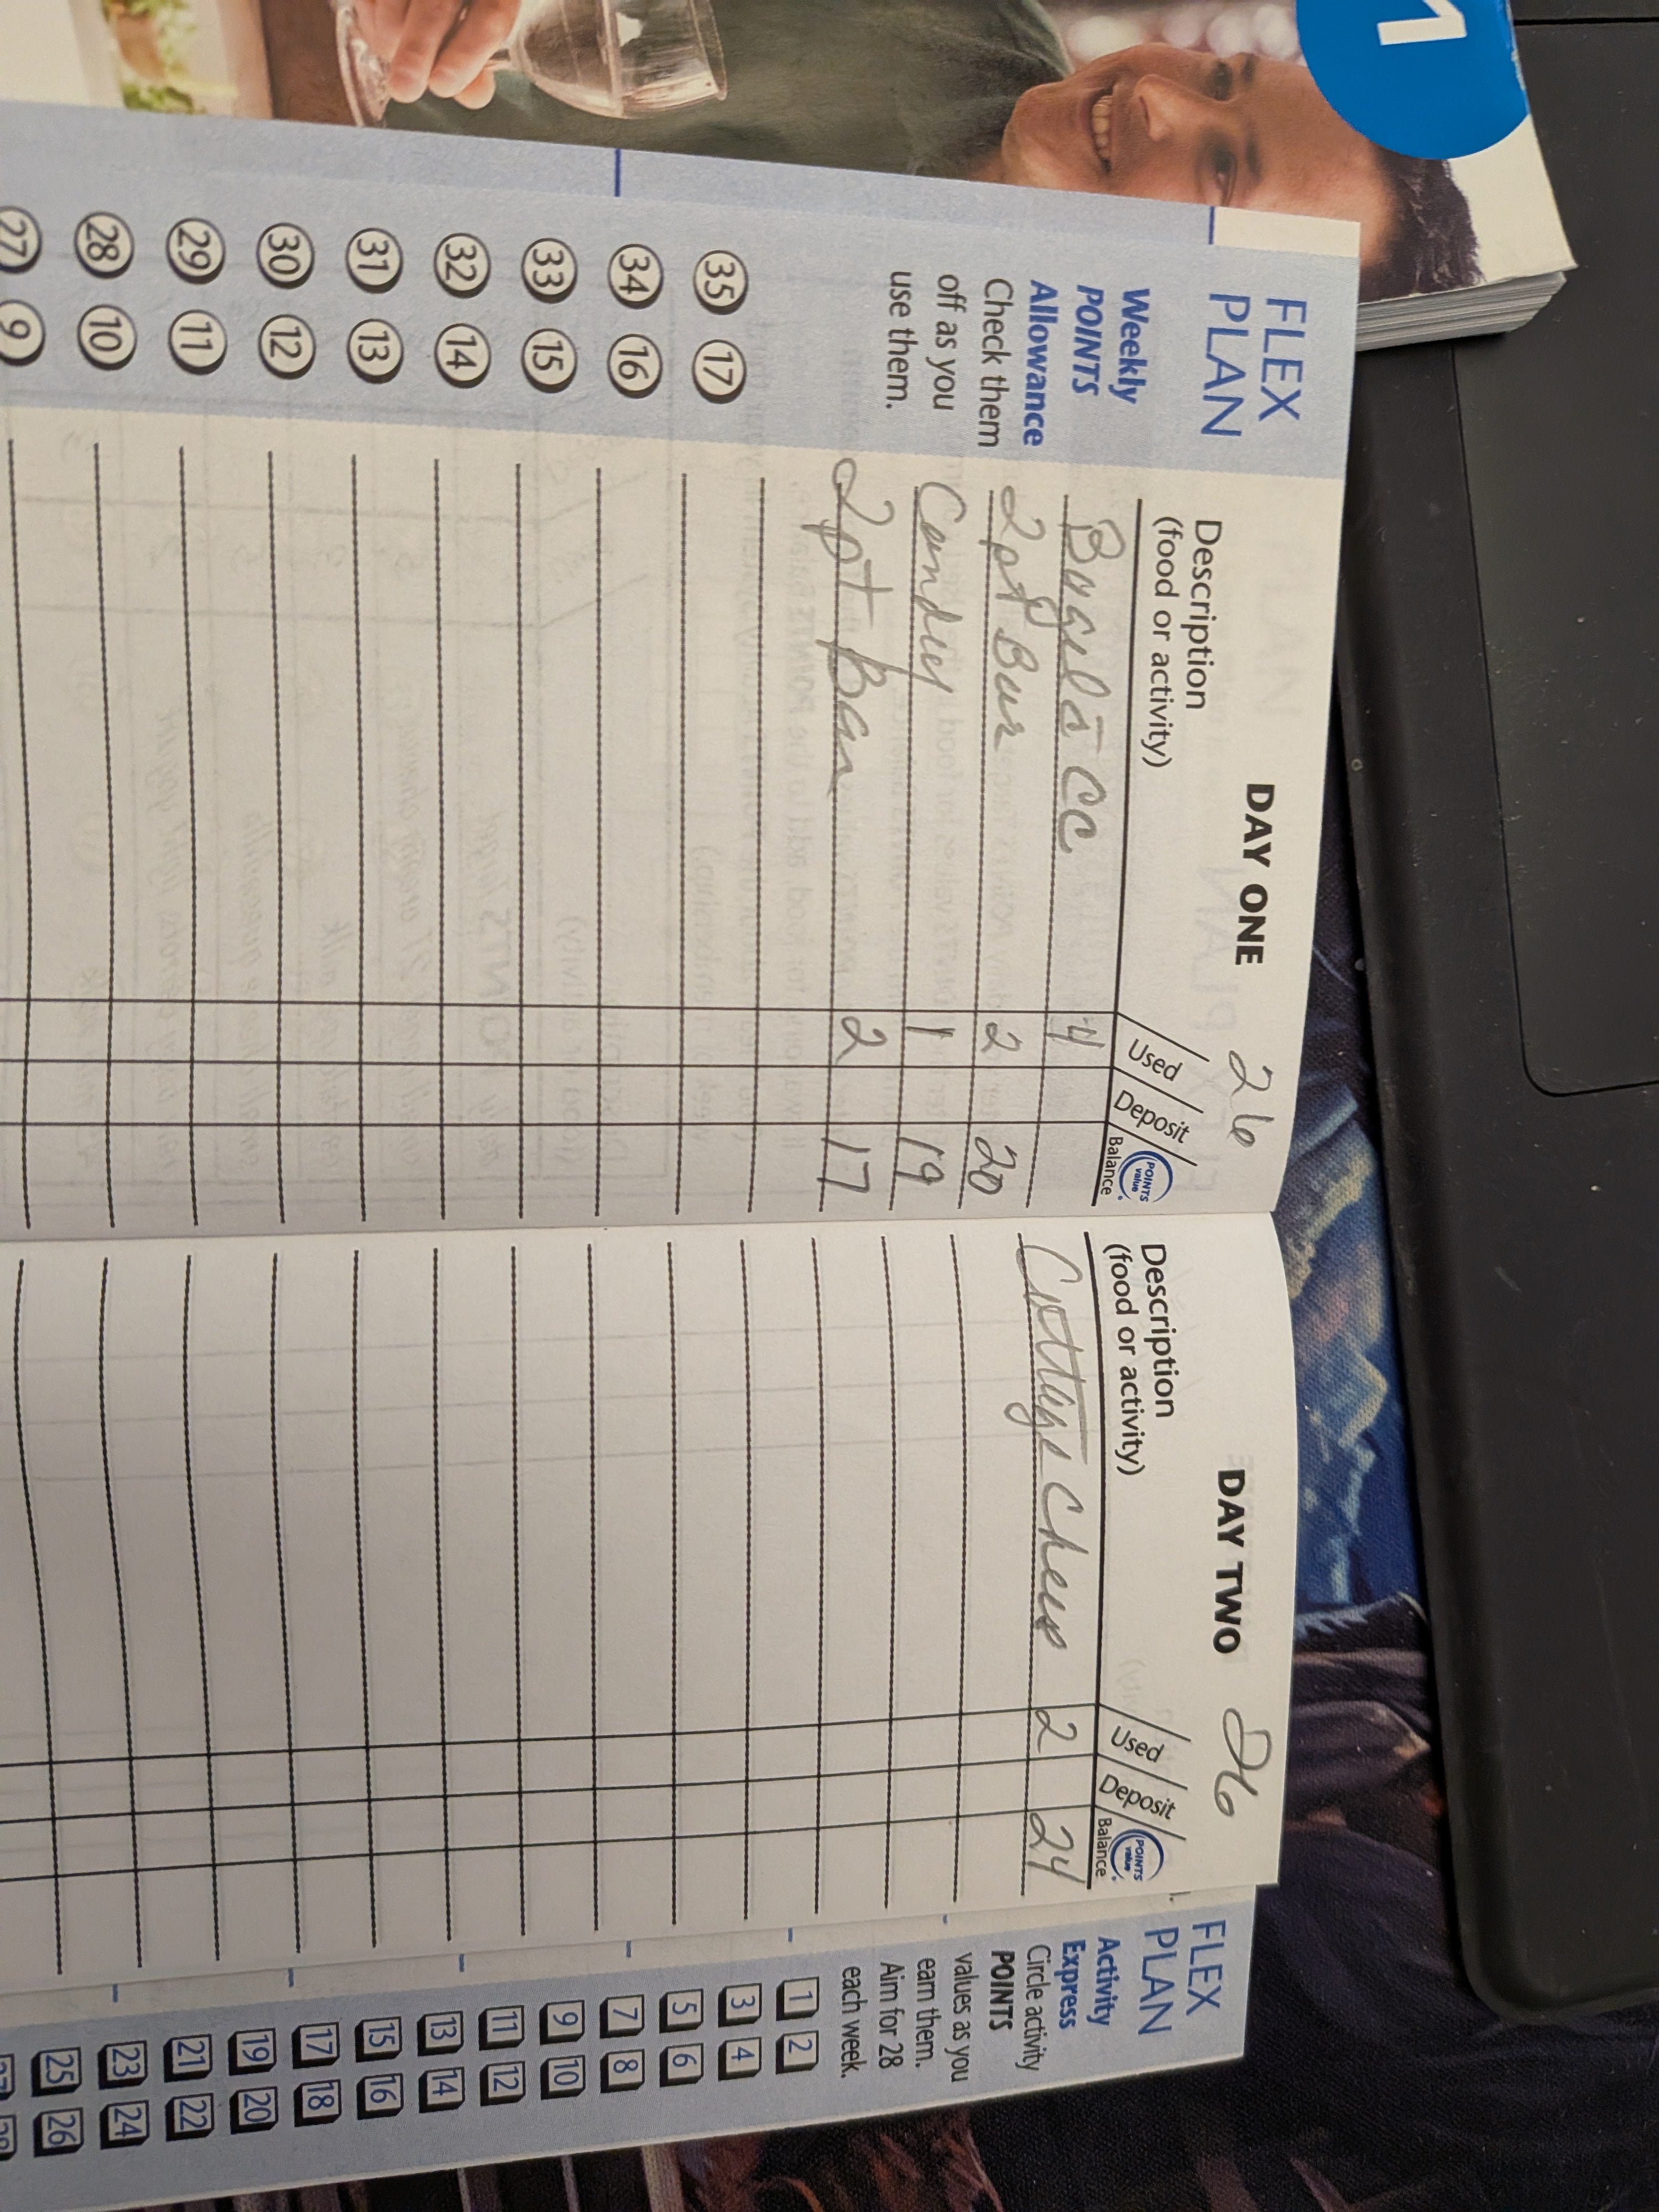 1
FLEX
PLAN
Weekly
POINTS
Allowance
Check them
off as you
use them.
35 17
34 16
33 15
32 14
31 13
30 12
29 11
28 10
27 9
DAY ONE 26
Description
(food or activity)
Used Deposit POINTS value Balance
Bagel c̄ CC 4
2pt Bar 2 20
Candy 1 19
2pt Bar 2 17
DAY TWO 26
Description
(food or activity)
Used Deposit POINTS value Balance
Cottage Cheese 2 24
FLEX
PLAN
Activity
Express
Circle activity
POINTS
values as you
earn them.
Aim for 28
each week.
1 2
3 4
5 6
7 8
9 10
11 12
13 14
15 16
17 18
19 20
21 22
23 24
25 26